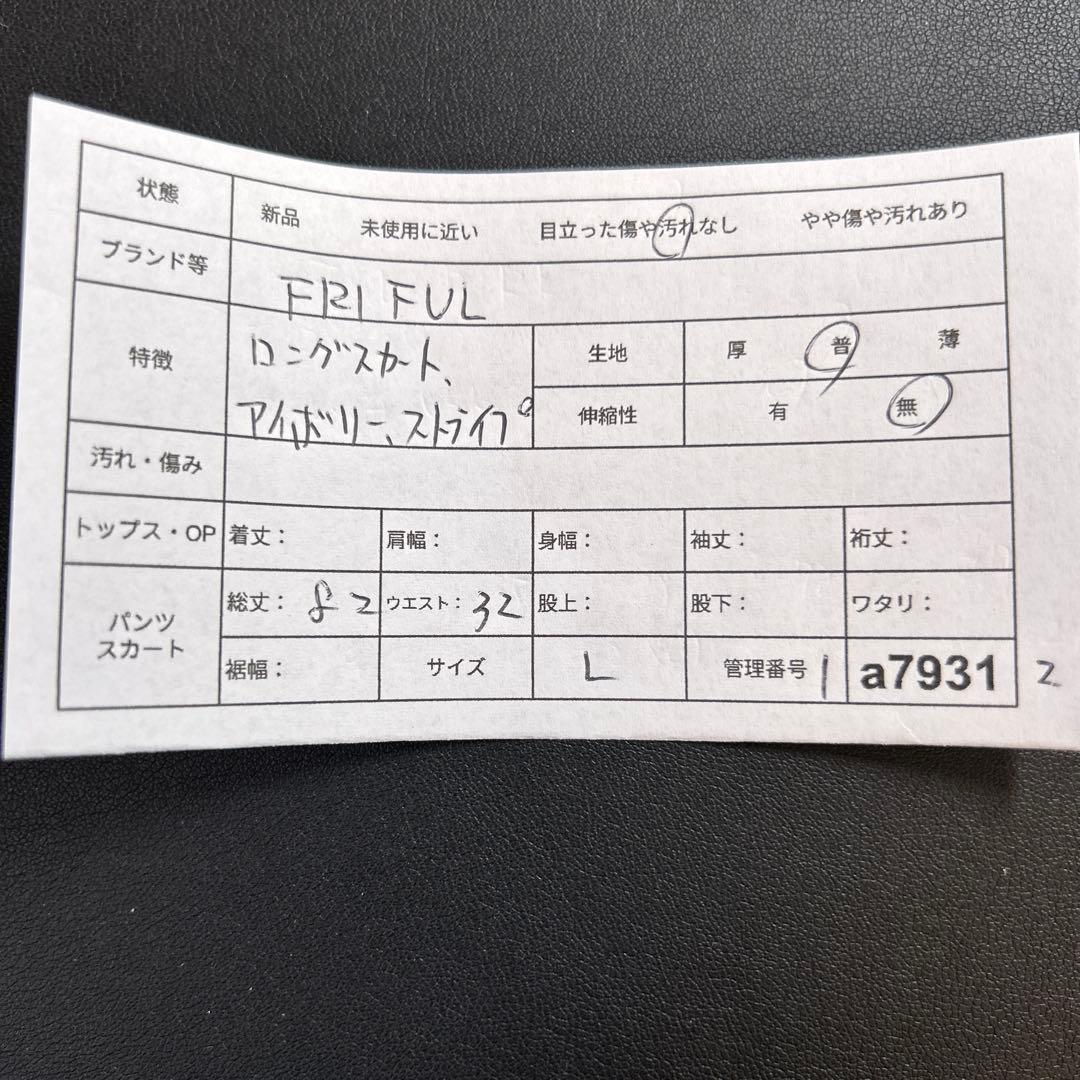 状態 新品 未使用に近い 目立った傷や汚れなし やや傷や汚れあり
ブランド等 FRI FUL
特徴 ロングスカート、 生地 厚 普 薄
アイボリー、ストライプ 伸縮性 有 無
汚れ・傷み
トップス・OP 着丈： 肩幅： 身幅： 袖丈： 裄丈：
パンツ スカート 総丈： 82 ウエスト： 32 股上： 股下： ワタリ：
裾幅： サイズ L 管理番号 1 a7931 2